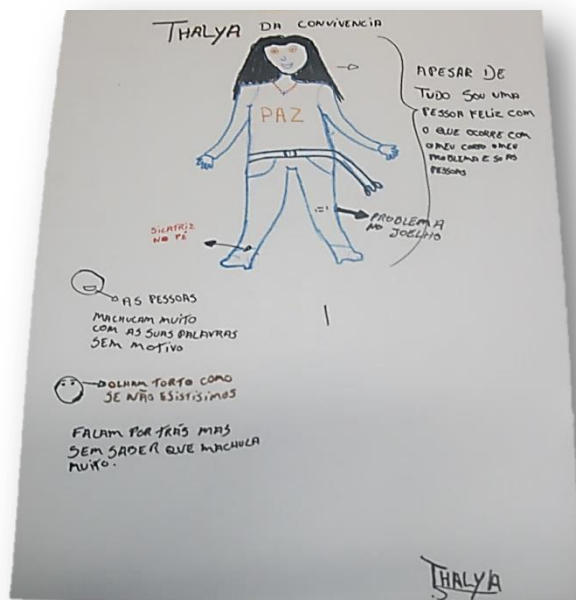 THALYA DA CONVIVENCIA
PAZ
APESAR DE
TUDO SOU UMA
PESSOA FELIZ COM
O QUE OCORRE COM
O MEU CORPO O MEU
PROBLEMA E SO AS
PESSOAS
SICATRIZ
NO PÉ
PROBLEMA
NO JOELHO
AS PESSOAS
MACHUCAM MUITO
COM AS SUAS PALAVRAS
SEM MOTIVO
OLHAM TORTO COMO
SE NÃO ESISTISIMOS
FALAM POR TRÁS MAS
SEM SABER QUE MACHULA
MUITO.
THALYA